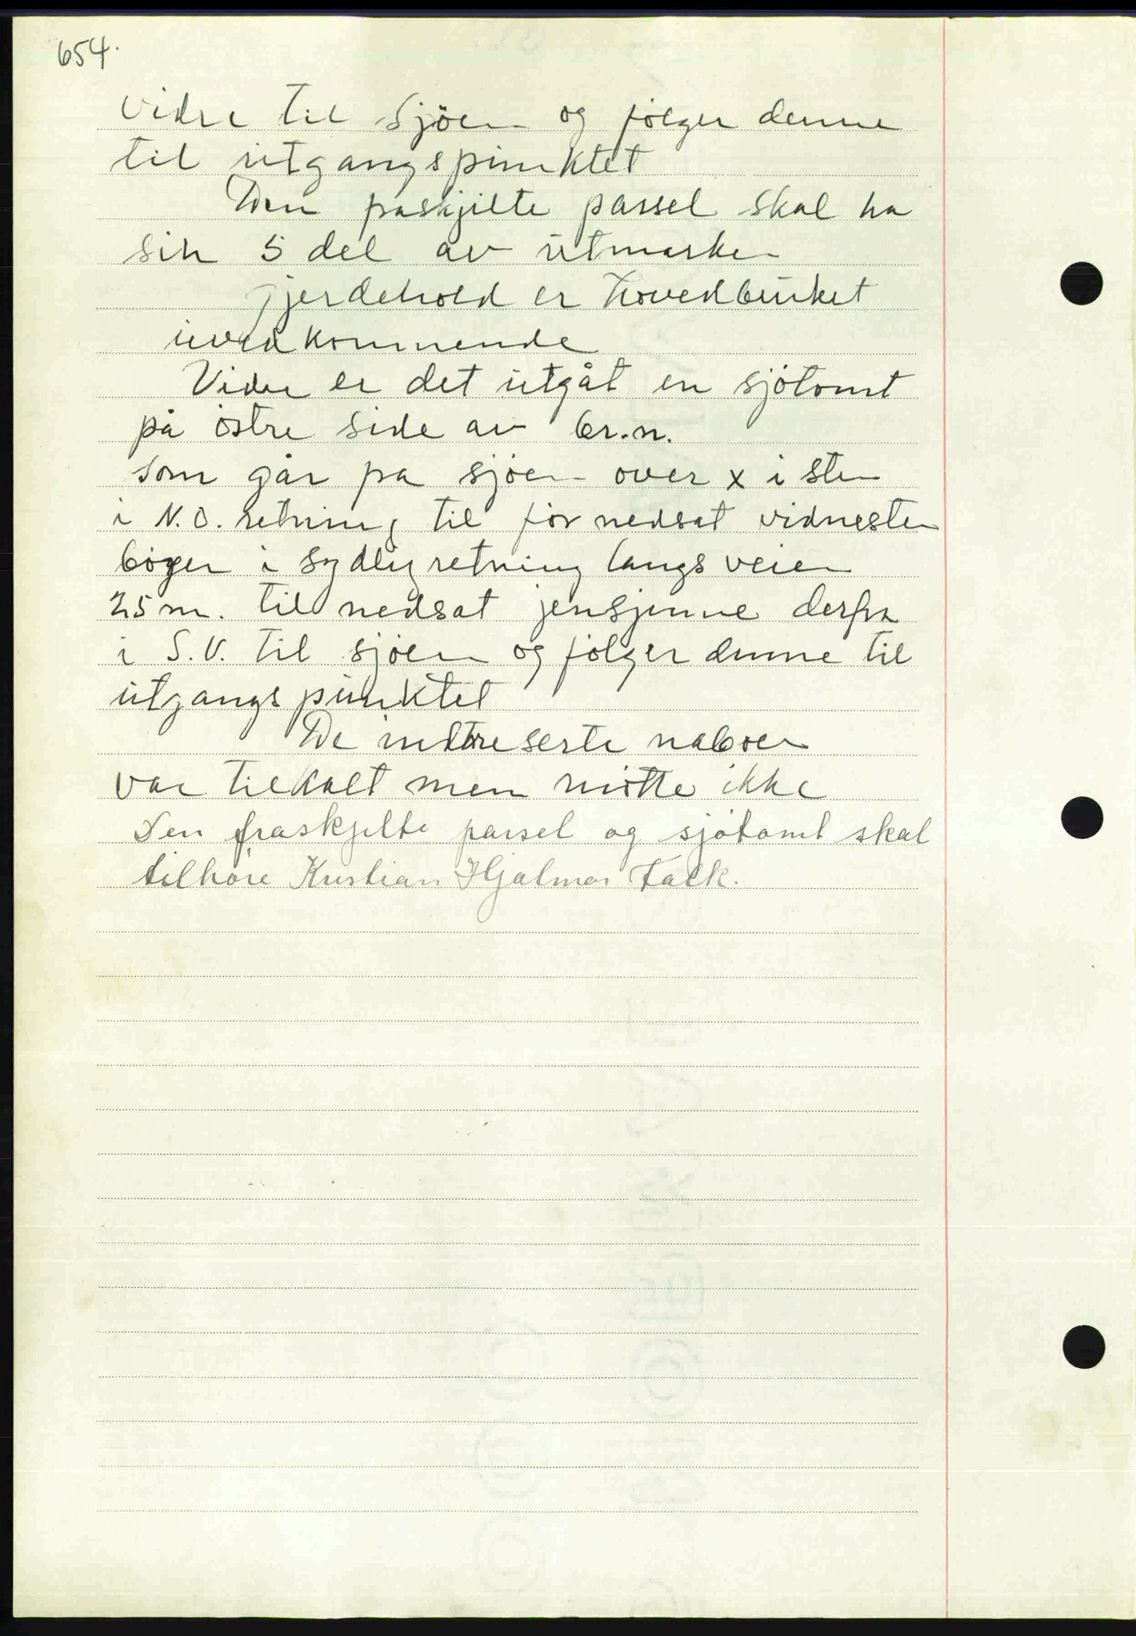 654.
vidre til sjöen og følger denne
til utgangspunktet
Den fraskjilte parsel skal ha
sin 5 del av utmarken
gjerdehold er hovedbruket
uvedkommende
Vidre er det utgåt en sjötomt
på östre side av br.n.
som går fra sjöen over x i sten
i N.O. retning til før nedsat vidnesten
böyer i sydlig retning langs veien
25 m. til nedsat derfra
i S.V. til sjöen og følger denne til
utgangspunktet
De indtreserte naboer
var tilkalt men mötte ikke
Den fraskjilte parsel og sjötomt skal
tilhöre Kristian Hjalmar Falk.